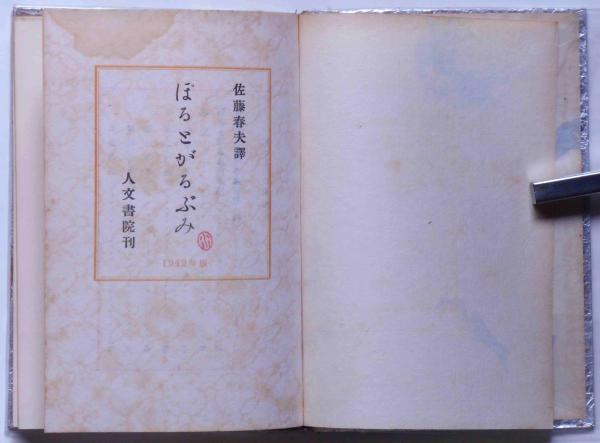 佐藤春夫譯
ぽるとがるぶみ
人文書院刊
1949年版